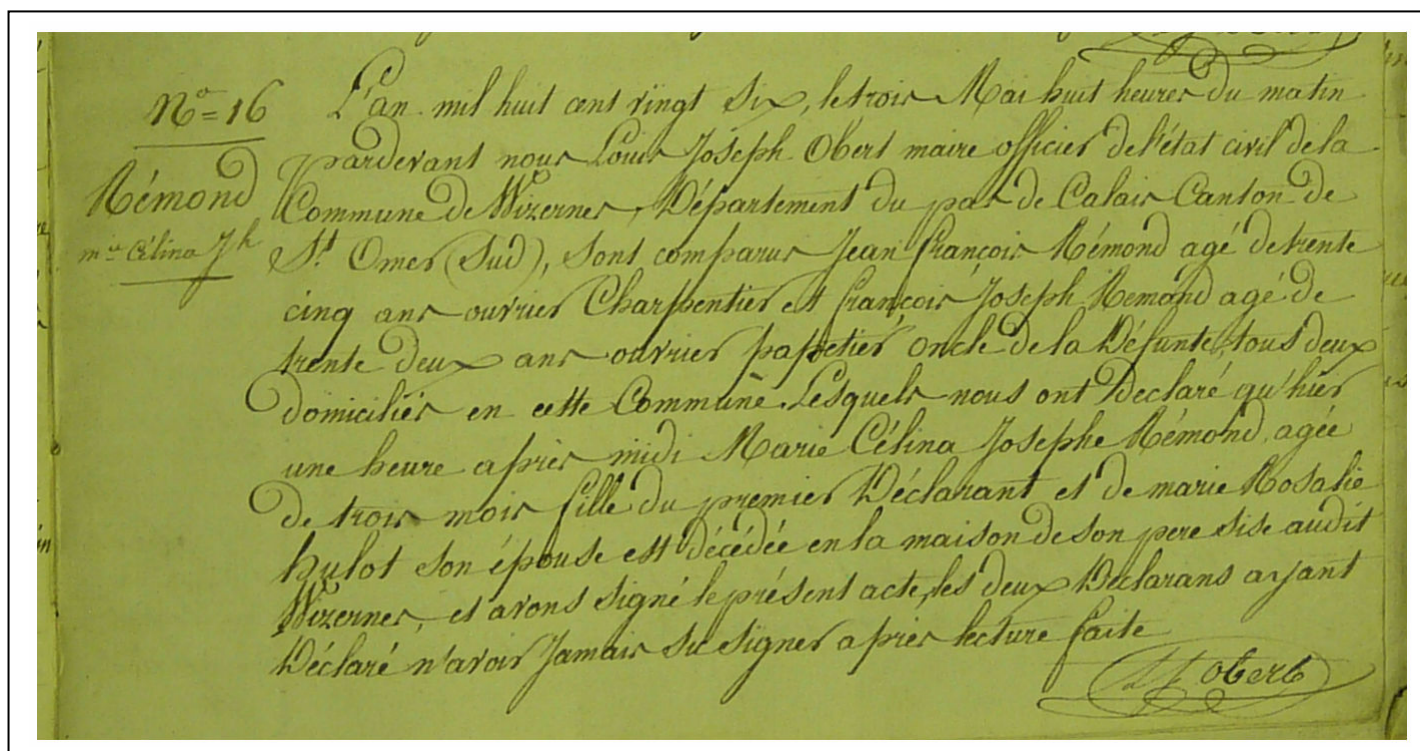 N° = 16
Rémond
mie Célina Jh
L'an mil huit cent vingt six, le trois Mai huit heures du matin
pardevant nous Louis Joseph Obert maire officier de l'état civil de la
Commune de Wizernes, Département du pas de Calais Canton de
St. Omer (Sud), sont comparus Jean françois Rémond agé de trente
cinq ans ouvrier Charpentier et françois Joseph Remond agé de
trente deux ans ouvrier papetier oncle de la Défunte, tous deux
domiciliés en cette Commune. Lesquels nous ont Declaré qu'hier
une heure après midi Marie Célina Josephe Rémond, agée
de trois mois fille du premier Déclarant et de marie Rosalie
hulot son épouse est décédée en la maison de son pere sise audit
Wizernes, et avons signé le présent acte, les deux Déclarans ayant
Déclaré n'avoir Jamais su signer après lecture faite
Obert